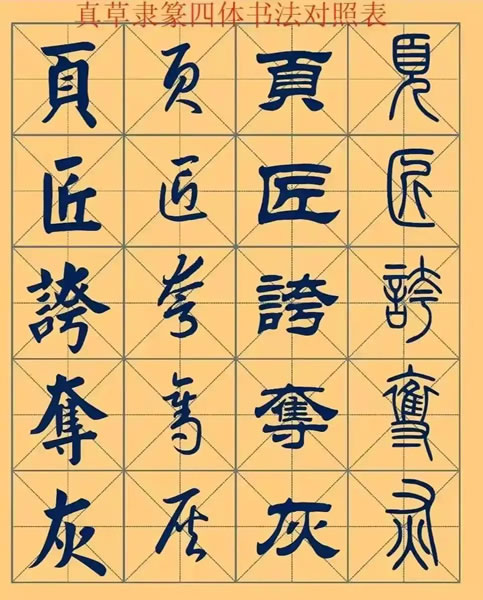 真草隶篆四体书法对照表
頁 页 頁 頁
匠 匠 匠 匠
誇 夸 誇 誇
奪 奪 奪 奪
灰 灰 灰 灰